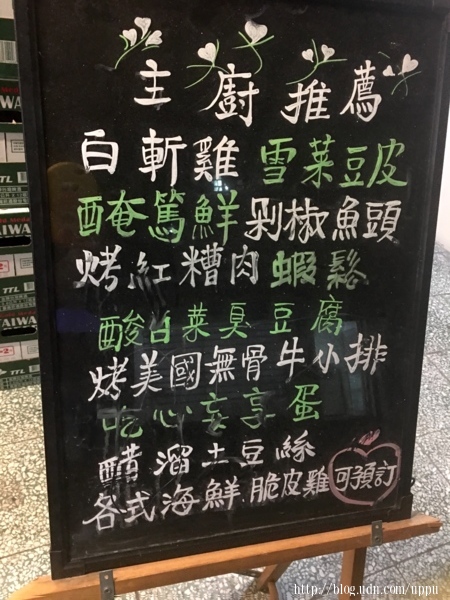 主廚推薦
白斬雞 雪菜豆皮
醃篤鮮 剁椒魚頭
烤紅糟肉 蝦鬆
酸白菜臭豆腐
烤美國無骨牛小排
吃心妄享蛋
醋溜土豆絲
各式海鮮 脆皮雞 可預訂
TTL
TTL
http://blog.udn.com/uppu